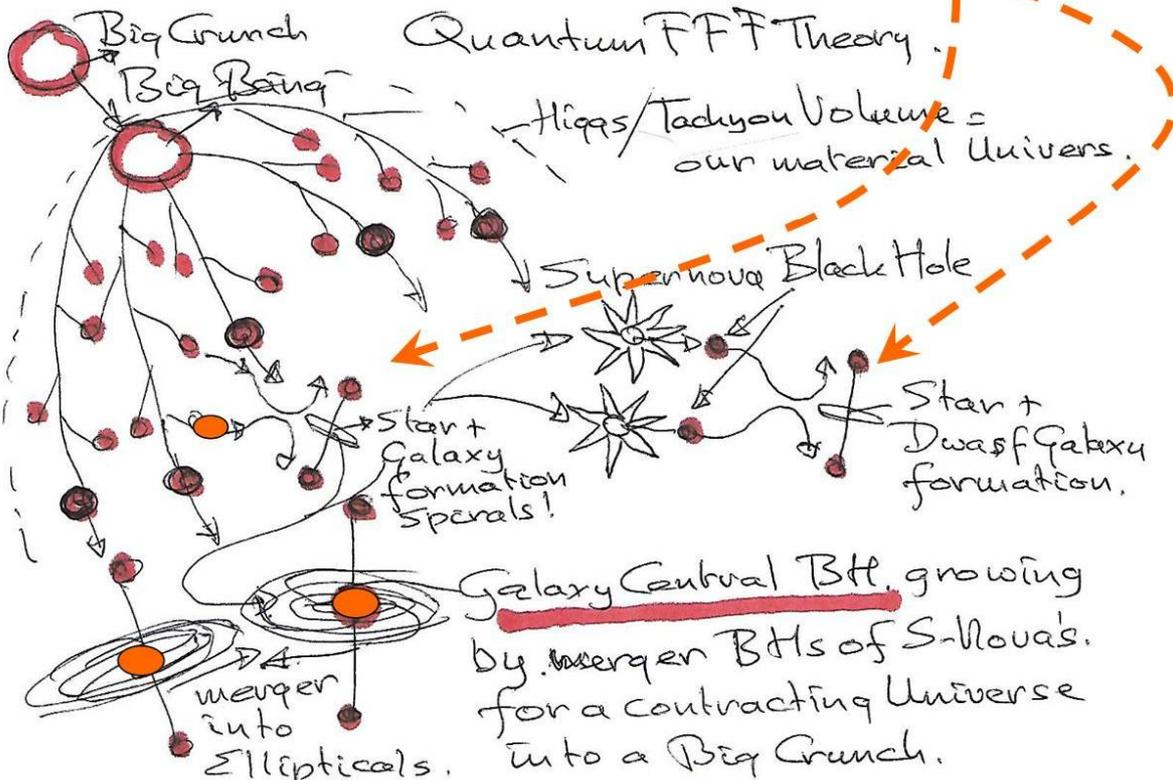 Big Crunch
Big Bang
Quantum FFF Theory.
Higgs/Tachyon Volume =
our material Univers.
Supernova Black Hole
Star +
Galaxy
formation
spirals!
Star +
Dwarf Galaxy
formation.
Galaxy Central BH. growing
by merger BHs of S-Nova's.
for a contracting Universe
into a Big Crunch.
merger
into
Ellipticals.